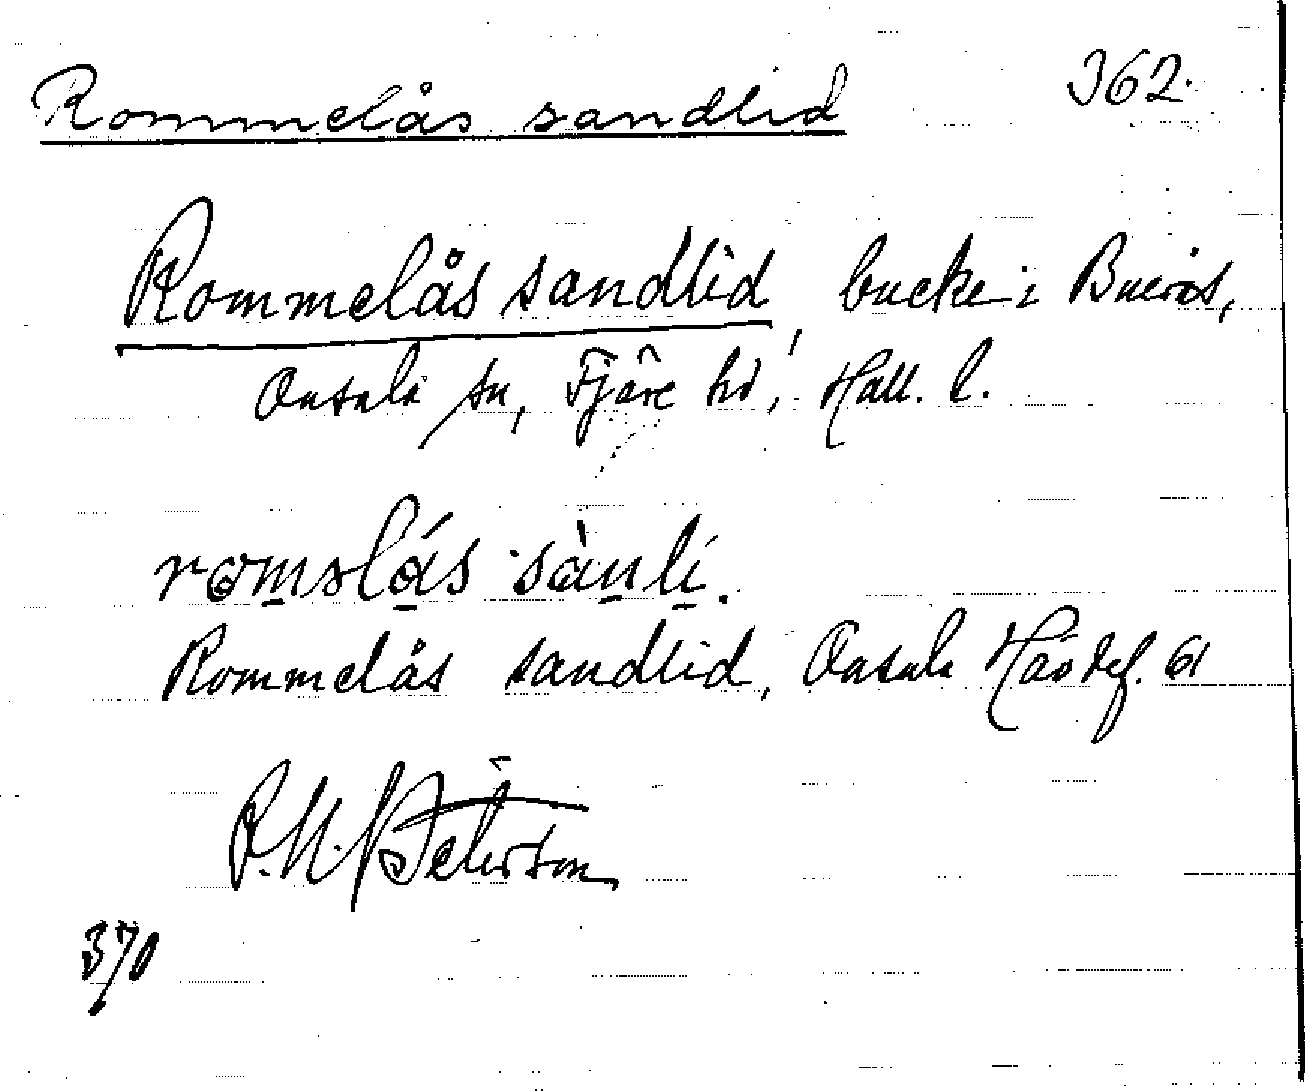 Rommelås sandlid 362.
Rommelås sandlid, backe i Buerås,
Onsala sn, Fjäre hd, Hall. l.
romslås sànlí.
Rommelås sandlid, Onsala Häradsf. 61
P.N. Peterson
370